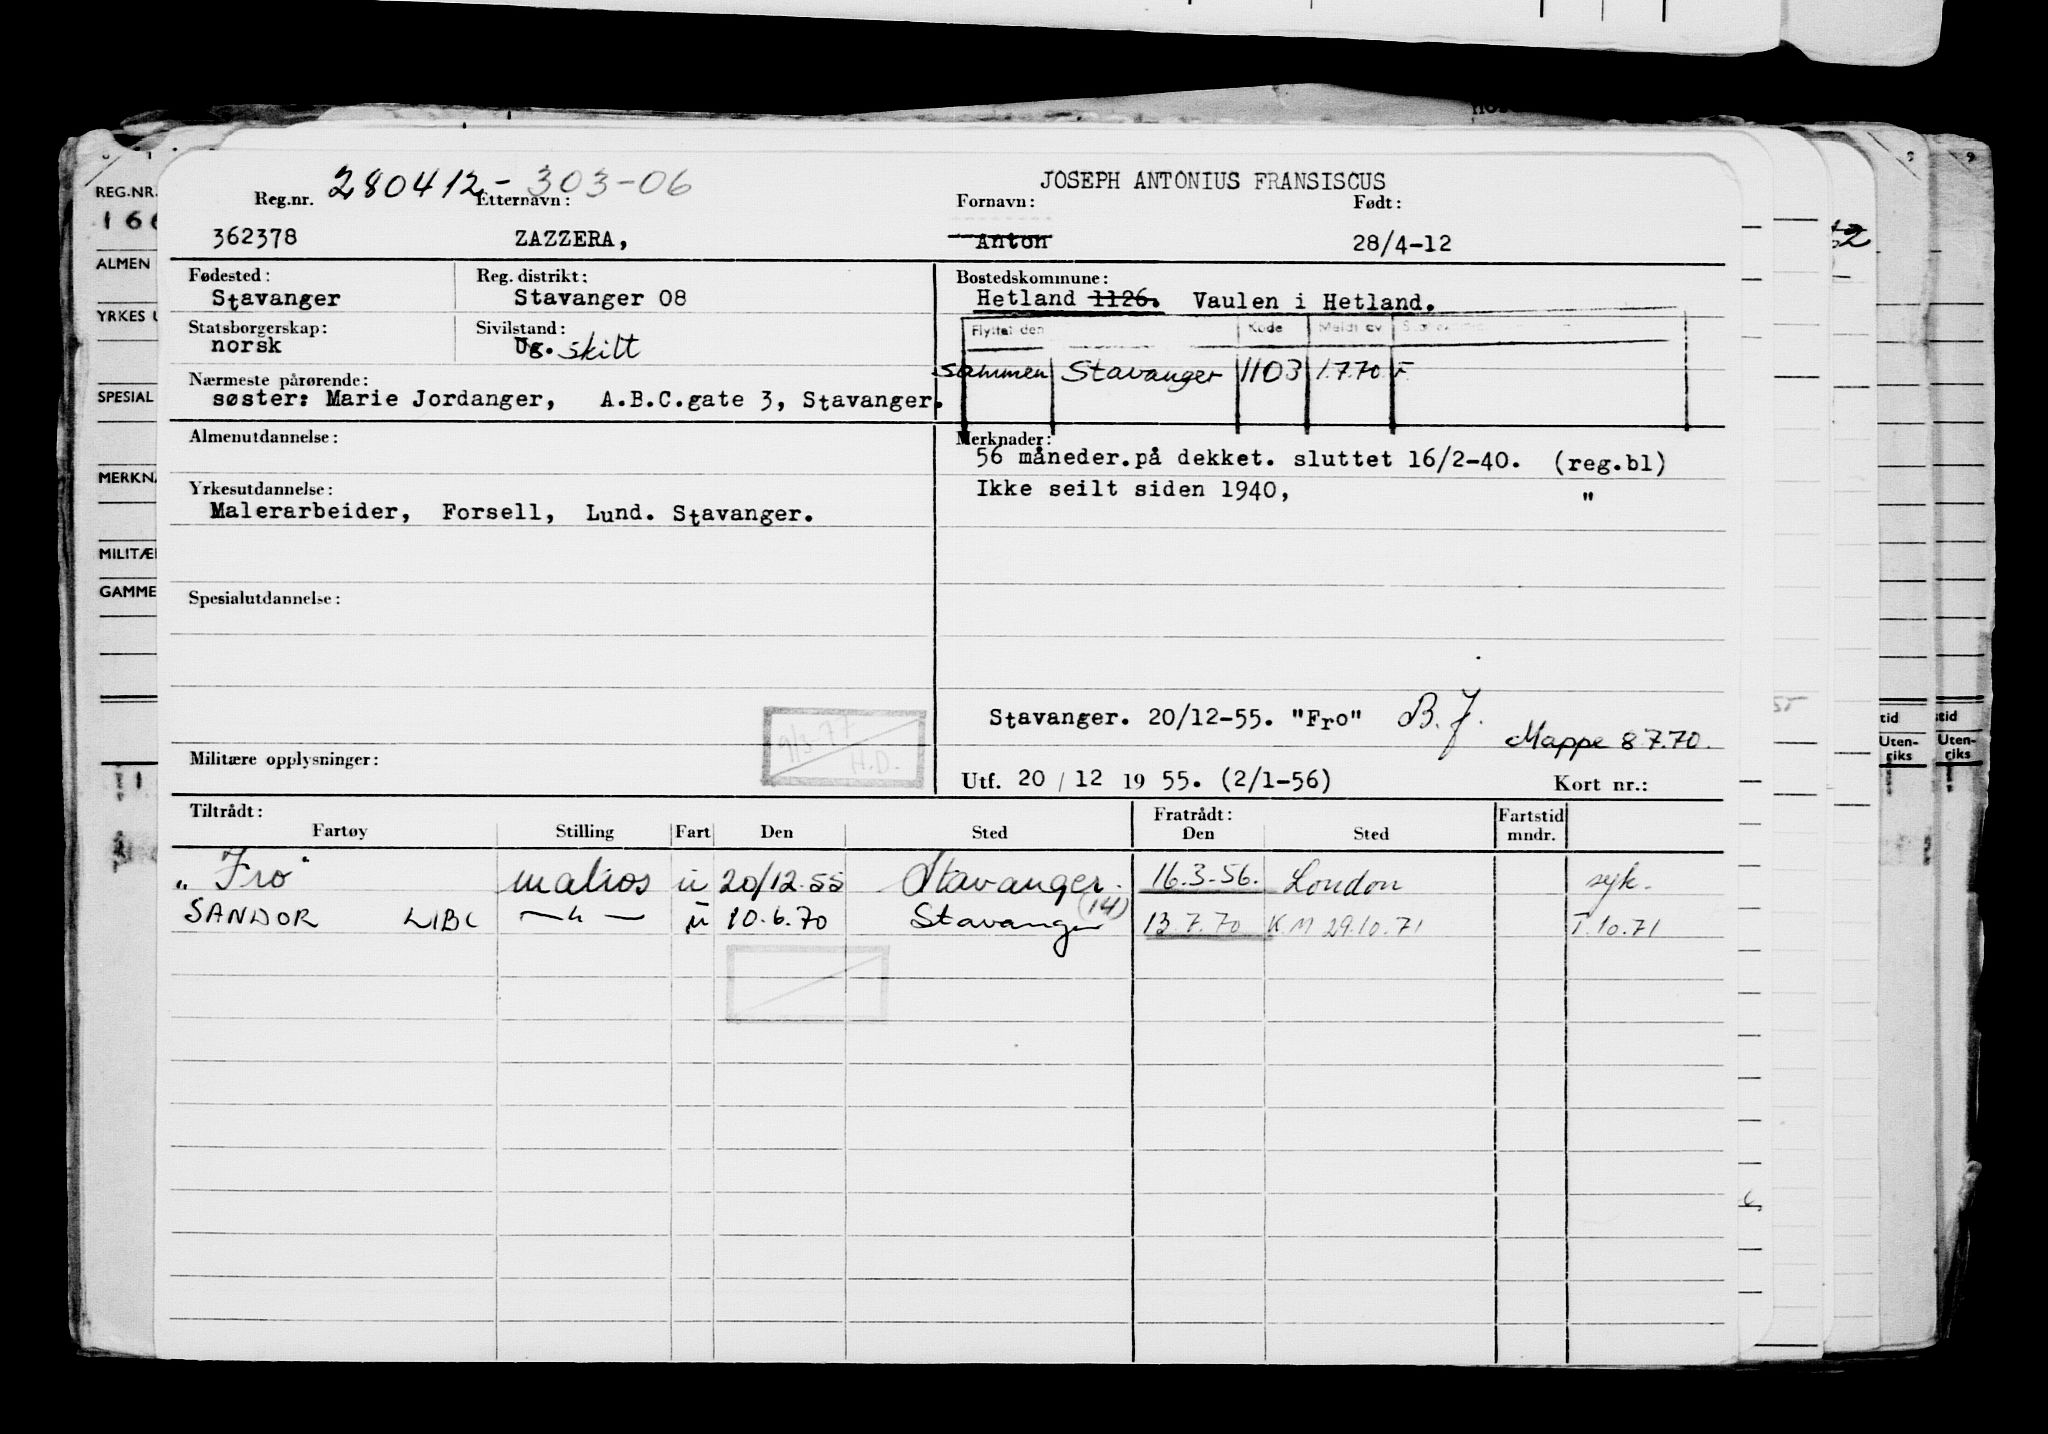 280412-303-06
JOSEPH ANTONIUS FRANSISCUS
Reg.nr. Etternavn: Fornavn: Født:
362378 ZAZZERA, Anton 28/4-12
Fødested: Reg. distrikt: Bostedskommune:
Stavanger Stavanger 08 Hetland 1126. Vaulen i Hetland.
Statsborgerskap: Sivilstand: Flyttet den Kode Meldt av
norsk Ug. skilt
Sammen Stavanger 1103 1.7.70 F
Nærmeste pårørende:
søster: Marie Jordanger, A.B.C.gate 3, Stavanger.
Almenutdannelse: Merknader:
56 måneder.på dekket. sluttet 16/2-40. (reg.bl)
Yrkesutdannelse: Ikke seilt siden 1940, "
Malerarbeider, Forsell, Lund. Stavanger.
Spesialutdannelse:
Stavanger. 20/12-55. "Fro" B.J.
9/3-77 H.D.
Mappe 8.7.70.
Militære opplysninger:
Utf. 20 / 12 19 55. (2/1-56) Kort nr.:
Tiltrådt: Fratrådt: Fartstid
Fartøy Stilling Fart Den Sted Den Sted mndr.
"Fro" matros u 20/12.55 Stavanger. 16.3-56. London syk.
SANDOR LIBC —"— u 10.6.70 Stavanger (14) 13.7.70 K.M 29.10.71 T.10.71
REG.NR.
166
ALMEN
YRKES U
SPESIAL
MERKNA
MILITÆ
GAMME
tid
Uten-
riks
tid
Uten-
riks